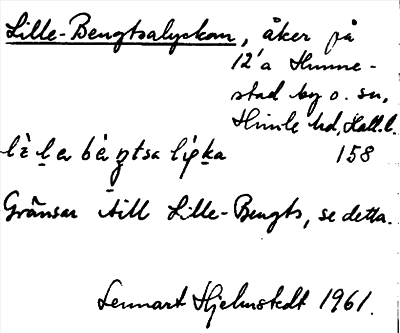 Lille-Bengtsalyckan, åker på
12'a Hunne-
stad by o. sn,
Himle hd, Hall. l.
158
Gränsar till Lille-Bengts, se detta.
Lennart Hjelmstedt 1961.